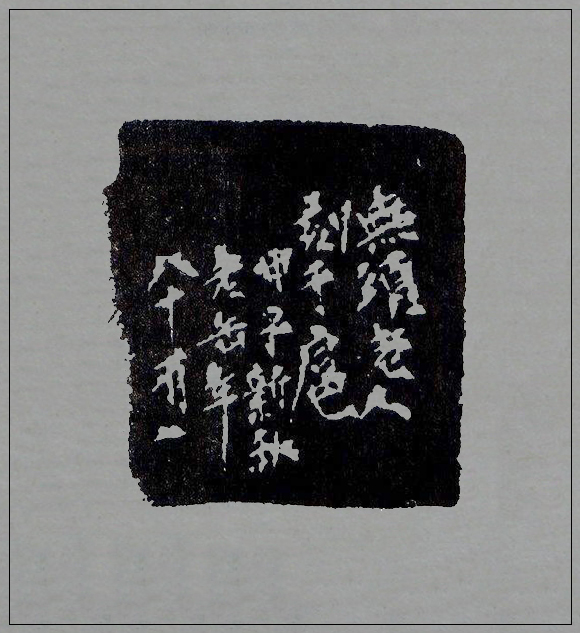 無須老人
刻于扈
甲子新秋
老缶年
八十有一